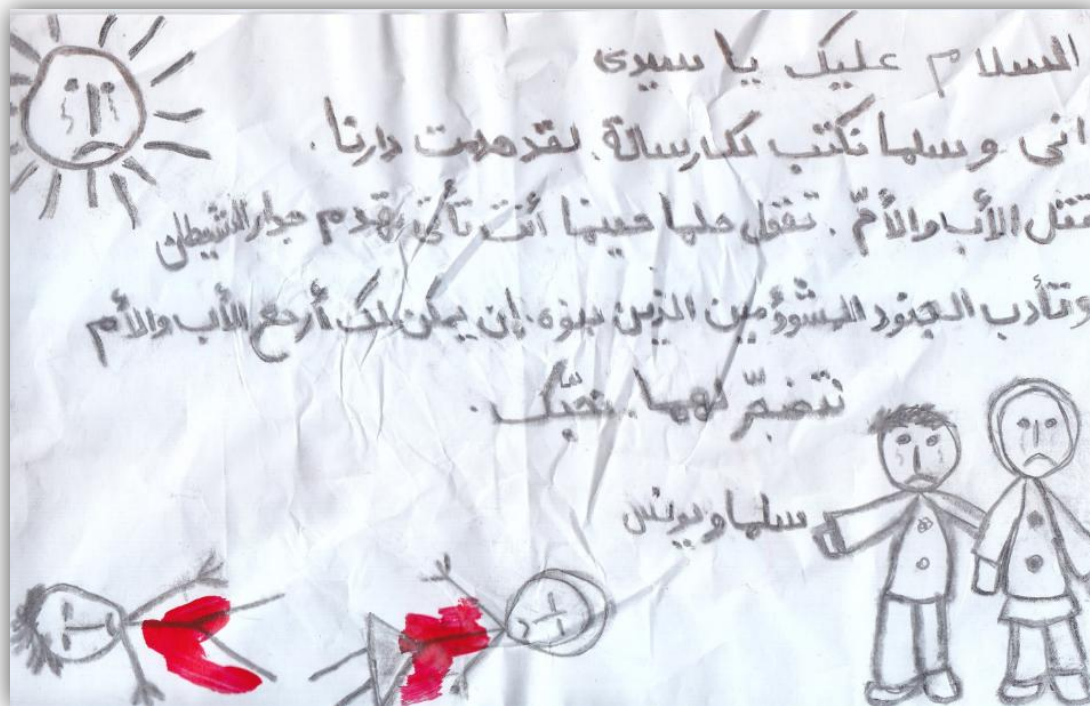 السلام عليك يا سيدى
انى وسلما نكتب لك رسالة. لقد هدمت دارنا.
تقتل الأب والأمّ. تقول حلما حينما أنت تأتى بهدم جدار الشيطان
وتأدب الجنود المشوؤمين الذين بنوه. إن يمكن لك أرجع الأب والأم
نتضمّ لهما. نحبّك.
سلما ويونس